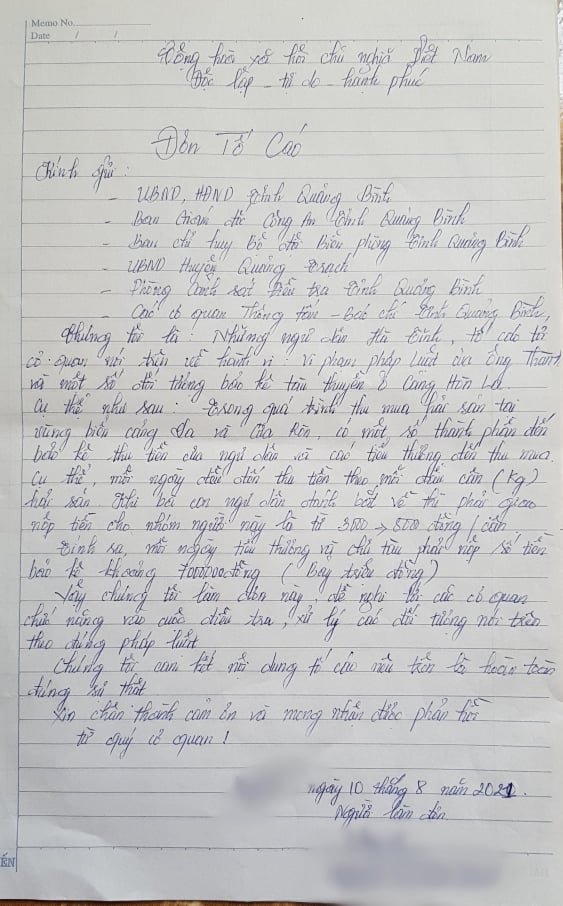 Memo No.
Date / /
Cộng hòa xã hội chủ nghĩa Việt Nam
Độc lập - tự do - hạnh phúc
Đơn Tố Cáo
Kính gửi :
- UBND, HĐND tỉnh Quảng Bình
- Ban Giám đốc Công An tỉnh Quảng Bình
- Ban chỉ huy Bộ đội Biên phòng tỉnh Quảng Bình
- UBND Huyện Quảng Trạch
- Phòng Cảnh sát điều tra tỉnh Quảng Bình
- Các cơ quan Thông tấn - Báo chí tỉnh Quảng Bình,
Chúng tôi là : Những ngư dân Hà Tĩnh, tố cáo tới
cơ quan nói trên về hành vi : Vi phạm pháp luật của ông Thành
và một số đối tượng bảo kê tàu thuyền ở Cảng Hòn La.
Cụ thể như sau : Trong quá trình thu mua hải sản tại
vùng biển cảng La và Cửa Ròn, có một số thành phần đến
bảo kê thu tiền của ngư dân và các tiểu thương đến thu mua.
Cụ thể, mỗi ngày đều đến thu tiền theo mỗi đầu cân (kg)
hải sản. Khi bà con ngư dân đánh bắt về thì phải giao
nộp tiền cho nhóm người này là từ 3000 → 5000 đồng / cân
Tính ra, mỗi ngày tiểu thương và chủ tàu phải nộp số tiền
bảo kê khoảng 7000000 đồng ( Bảy triệu đồng )
Vậy chúng tôi làm đơn này, đề nghị tới các cơ quan
chức năng vào cuộc điều tra, xử lý các đối tượng nói trên
theo đúng pháp luật
Chúng tôi cam kết nội dung tố cáo nêu trên là hoàn toàn
đúng sự thật
Xin chân thành cảm ơn và mong nhận được phản hồi
từ quý cơ quan !
ngày 10 tháng 8 năm 2021.
Người làm đơn
ẾN